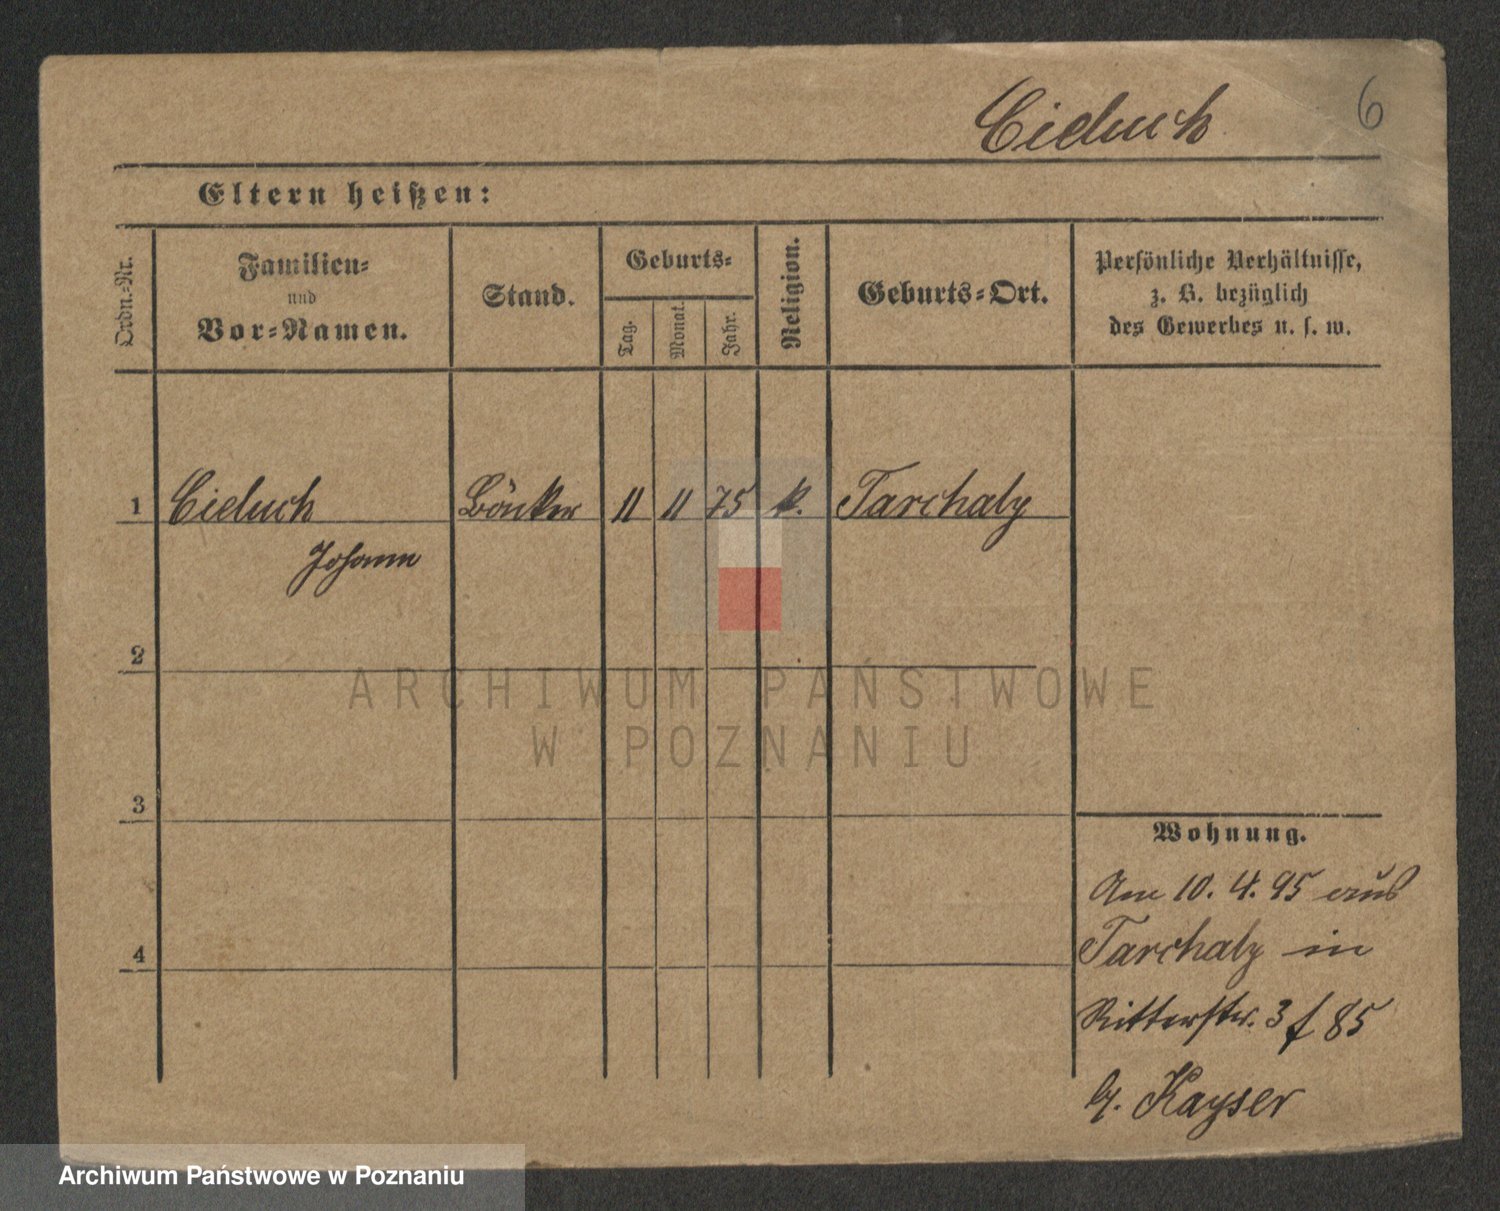 Cieluch
6
Eltern heißen:
Ordn.-Nr.
Familien-
und
Vor-Namen.
Stand.
Geburts-
Tag.
Monat.
Jahr.
Religion.
Geburts-Ort.
Persönliche Verhältnisse,
z. B. bezüglich
des Gewerbes u. s. w.
1 Cieluch Bönker 11 11 75 k. Tarchaly
Johann
2
3
4
ARCHIWUM PAŃSTWOWE
W POZNANIU
Wohnung.
Am 10. 4. 95 aus
Tarchaly in
Ritterstr. 3 f 85
b. Kayser
Archiwum Państwowe w Poznaniu